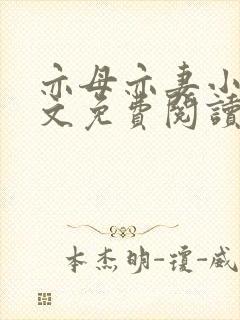 亦母亦妻小
文免費閱讀
本杰明-瓊-威